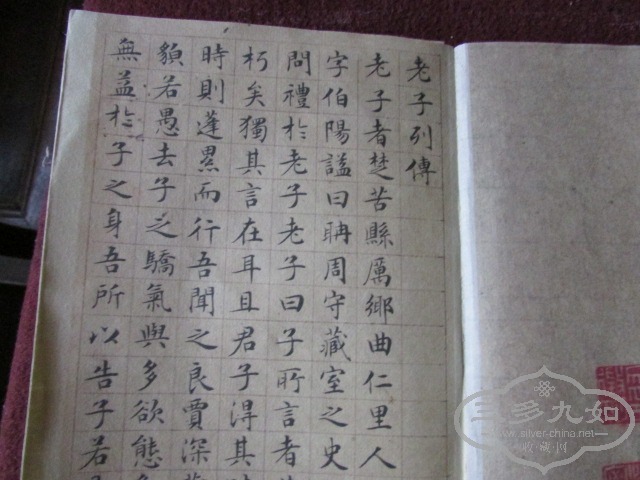 老子列傳
老子者楚苦縣厲鄉曲仁里人
字伯陽謚曰聃周守藏室之史
問禮於老子老子曰子所言者
朽矣獨其言在耳且君子得其
時則蓬累而行吾聞之良賈深
貌若愚去子之驕氣與多欲態
無益於子之身吾所以告子若
三多九如
www.silver-china.net
收藏网